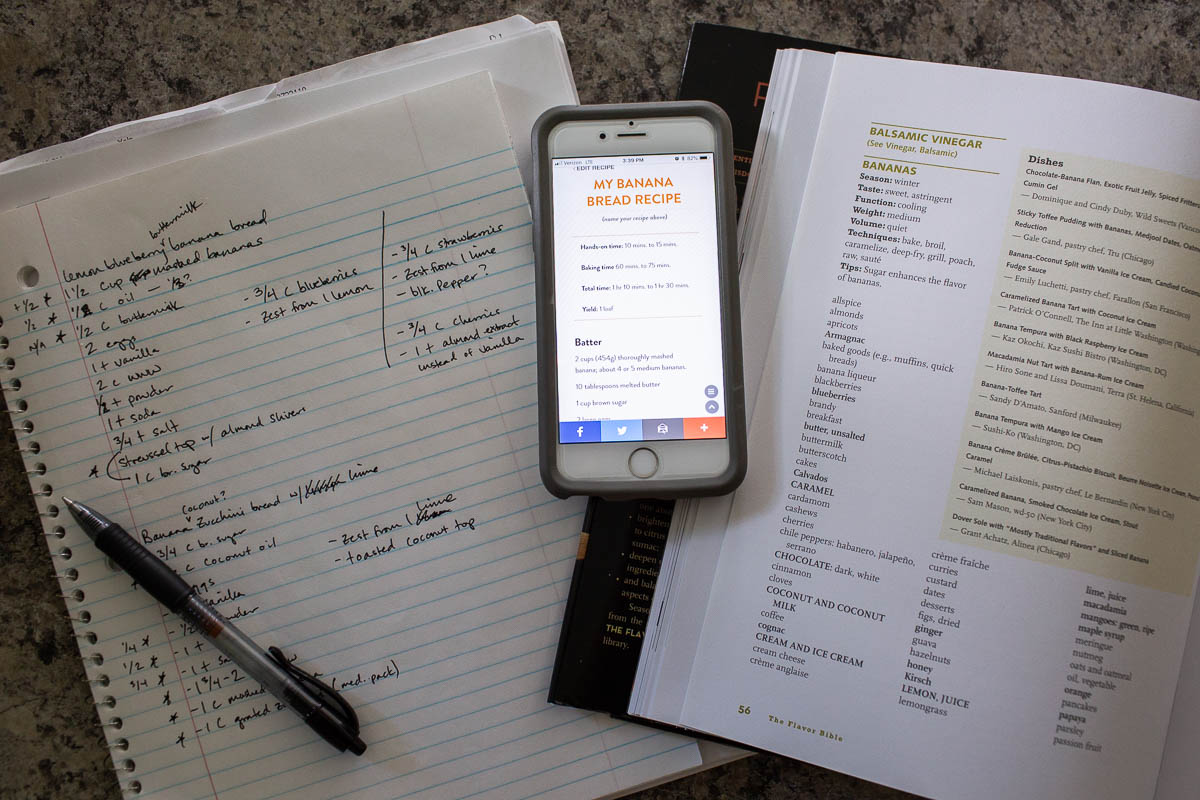 buttermilk
lemon blueberry ^ banana bread
+1/2 * 1 1/2 cup mashed bananas
1/2 * 1/2 c oil — 1/3?
n/a * 1/2 c buttermilk
2 eggs
1 t vanilla
2 c
1/2 t powder
1 t soda
3/4 t salt
* streussel top w/ almond slivers
1 c br. sugar
- 3/4 c blueberries
- zest from 1 lemon
- 3/4 c strawberries
- zest from 1 lime
- blk. pepper?
- 3/4 c cherries
- 1 t almond extract
instead of vanilla
(coconut?)
Banana ^ zucchini bread w/ lime
3/4 c br. sugar
c coconut oil
- zest from 1 lime
- toasted coconut top
1/4 *
1/2 *
3/4 * - 1 t
* - 1 3/4 - 2
* - 1 c mashed (med. pack)
* - 1 c grated
Verizon LTE 3:39 PM 82%
EDIT RECIPE
MY BANANA
BREAD RECIPE
(name your recipe above)
Hands-on time: 10 mins. to 15 mins.
Baking time 60 mins. to 75 mins.
Total time: 1 hr 10 mins. to 1 hr 30 mins.
Yield: 1 loaf
Batter
2 cups (454g) thoroughly mashed
banana; about 4 or 5 medium bananas.
10 tablespoons melted butter
1 cup brown sugar
brighten
to citrus
sumac,
deepen
ingredie
and bala
aspects
Seaso
from the
THE FLAV
library.
BALSAMIC VINEGAR
(See Vinegar, Balsamic)
BANANAS
Season: winter
Taste: sweet, astringent
Function: cooling
Weight: medium
Volume: quiet
Techniques: bake, broil,
caramelize, deep-fry, grill, poach,
raw, sauté
Tips: Sugar enhances the flavor
of bananas.
allspice
almonds
apricots
Armagnac
baked goods (e.g., muffins, quick
breads)
banana liqueur
blackberries
blueberries
brandy
breakfast
butter, unsalted
buttermilk
butterscotch
cakes
Calvados
CARAMEL
cardamom
cashews
cherries
chile peppers: habanero, jalapeño,
serrano
CHOCOLATE: dark, white
cinnamon
cloves
COCONUT AND COCONUT
MILK
coffee
cognac
CREAM AND ICE CREAM
cream cheese
crème anglaise
crème fraîche
curries
custard
dates
desserts
figs, dried
ginger
guava
hazelnuts
honey
Kirsch
LEMON, JUICE
lemongrass
lime, juice
macadamia
mangoes: green, ripe
maple syrup
meringue
nutmeg
oats and oatmeal
oil, vegetable
orange
pancakes
papaya
parsley
passion fruit
Dishes
Chocolate-Banana Flan, Exotic Fruit Jelly, Spiced Fritter
Cumin Gel
— Dominique and Cindy Duby, Wild Sweets (Vanc
Sticky Toffee Pudding with Bananas, Medjool Dates,
Reduction
— Gale Gand, pastry chef, Tru (Chicago)
Banana-Coconut Split with Vanilla Ice Cream, Candied Coconut
Fudge Sauce
— Emily Luchetti, pastry chef, Farallon (San Francisco)
Caramelized Banana Tart with Coconut Ice Cream
— Patrick O'Connell, The Inn at Little Washington (Washin
Banana Tempura with Black Raspberry Ice Cream
— Kaz Okochi, Kaz Sushi Bistro (Washington, DC)
Macadamia Nut Tart with Banana-Rum Ice Cream
— Hiro Sone and Lissa Doumani, Terra (St. Helena, California)
Banana-Toffee Tart
— Sandy D'Amato, Sanford (Milwaukee)
Banana Tempura with Mango Ice Cream
— Sushi-Ko (Washington, DC)
Banana Crème Brûlée, Citrus-Pistachio Biscuit, Beurre Noisette Ice Cream,
Caramel
— Michael Laiskonis, pastry chef, Le Bernardin (New York City)
Caramelized Banana, Smoked Chocolate Ice Cream, Stout
— Sam Mason, wd-50 (New York City)
Dover Sole with "Mostly Traditional Flavors" and Sliced Banana
— Grant Achatz, Alinea (Chicago)
56 The Flavor Bible